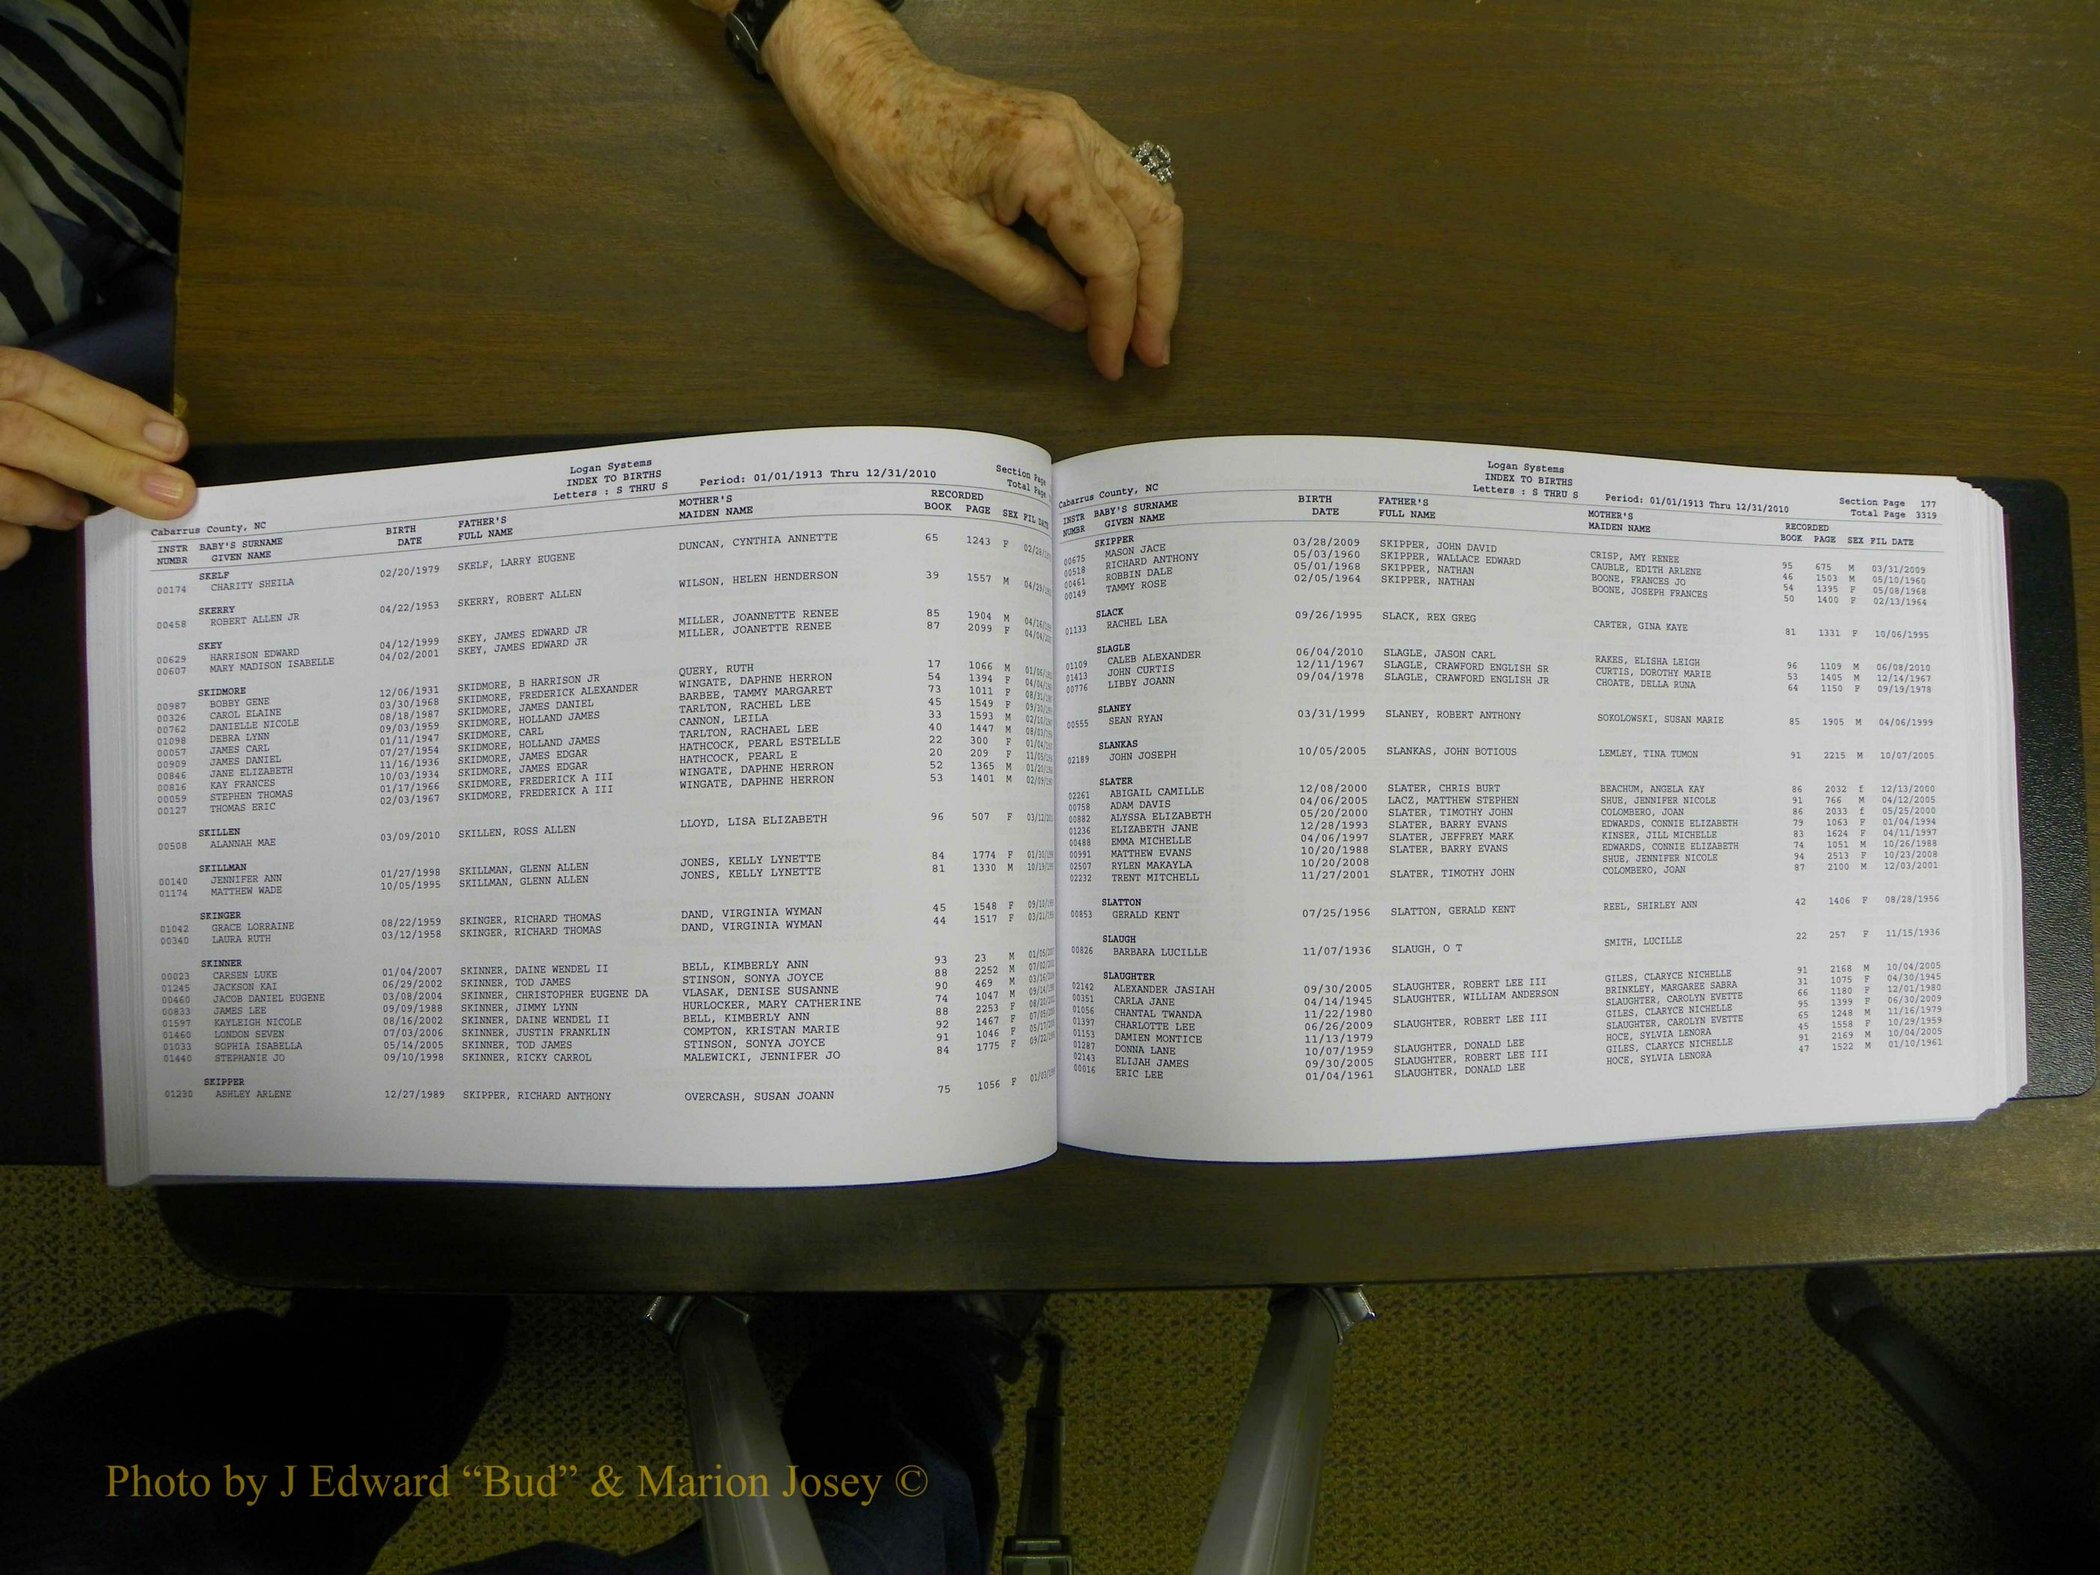 Logan Systems
INDEX TO BIRTHS
Letters : S THRU S Period: 01/01/1913 Thru 12/31/2010 Section Page
Cabarrus County, NC Total Page
INSTR BABY'S SURNAME BIRTH FATHER'S MOTHER'S RECORDED
NUMBR GIVEN NAME DATE FULL NAME MAIDEN NAME BOOK PAGE SEX FIL DATE
SKELF
00174 CHARITY SHEILA 02/20/1979 SKELF, LARRY EUGENE DUNCAN, CYNTHIA ANNETTE 65 1243 F
SKERRY
00458 ROBERT ALLEN JR 04/22/1953 SKERRY, ROBERT ALLEN WILSON, HELEN HENDERSON 39 1557 M
SKEY
00629 HARRISON EDWARD 04/12/1999 SKEY, JAMES EDWARD JR MILLER, JOANNETTE RENEE 85 1904 M
00607 MARY MADISON ISABELLE 04/02/2001 SKEY, JAMES EDWARD JR MILLER, JOANETTE RENEE 87 2099 F
SKIDMORE
00987 BOBBY GENE 12/06/1931 SKIDMORE, B HARRISON JR QUERY, RUTH 17 1066 M
00326 CAROL ELAINE 03/30/1968 SKIDMORE, FREDERICK ALEXANDER WINGATE, DAPHNE HERRON 54 1394 F
00762 DANIELLE NICOLE 08/18/1987 SKIDMORE, JAMES DANIEL BARBEE, TAMMY MARGARET 73 1011 F
01098 DEBRA LYNN 09/03/1959 SKIDMORE, HOLLAND JAMES TARLTON, RACHEL LEE 45 1549 F
00057 JAMES CARL 01/11/1947 SKIDMORE, CARL CANNON, LEILA 33 1593 M
00909 JAMES DANIEL 07/27/1954 SKIDMORE, HOLLAND JAMES TARLTON, RACHAEL LEE 40 1447 M
00846 JANE ELIZABETH 11/16/1936 SKIDMORE, JAMES EDGAR HATHCOCK, PEARL ESTELLE 22 300 F
00816 KAY FRANCES 10/03/1934 SKIDMORE, JAMES EDGAR HATHCOCK, PEARL E 20 209 F
00059 STEPHEN THOMAS 01/17/1966 SKIDMORE, FREDERICK A III WINGATE, DAPHNE HERRON 52 1365 M
00127 THOMAS ERIC 02/03/1967 SKIDMORE, FREDERICK A III WINGATE, DAPHNE HERRON 53 1401 M
SKILLEN
00508 ALANNAH MAE 03/09/2010 SKILLEN, ROSS ALLEN LLOYD, LISA ELIZABETH 96 507 F
SKILLMAN
00140 JENNIFER ANN 01/27/1998 SKILLMAN, GLENN ALLEN JONES, KELLY LYNETTE 84 1774 F
01174 MATTHEW WADE 10/05/1995 SKILLMAN, GLENN ALLEN JONES, KELLY LYNETTE 81 1330 M
SKINGER
01042 GRACE LORRAINE 08/22/1959 SKINGER, RICHARD THOMAS DAND, VIRGINIA WYMAN 45 1548 F
00340 LAURA RUTH 03/12/1958 SKINGER, RICHARD THOMAS DAND, VIRGINIA WYMAN 44 1517 F
SKINNER
00023 CARSEN LUKE 01/04/2007 SKINNER, DAINE WENDEL II BELL, KIMBERLY ANN 93 23 M
01245 JACKSON KAI 06/29/2002 SKINNER, TOD JAMES STINSON, SONYA JOYCE 88 2252 M
00460 JACOB DANIEL EUGENE 03/08/2004 SKINNER, CHRISTOPHER EUGENE DA VLASAK, DENISE SUSANNE 90 469 M
00833 JAMES LEE 09/09/1988 SKINNER, JIMMY LYNN HURLOCKER, MARY CATHERINE 74 1047 M
01597 KAYLEIGH NICOLE 08/16/2002 SKINNER, DAINE WENDEL II BELL, KIMBERLY ANN 88 2253 F
01460 LONDON SEVEN 07/03/2006 SKINNER, JUSTIN FRANKLIN COMPTON, KRISTAN MARIE 92 1467 F
01033 SOPHIA ISABELLA 05/14/2005 SKINNER, TOD JAMES STINSON, SONYA JOYCE 91 1046 F
01440 STEPHANIE JO 09/10/1998 SKINNER, RICKY CARROL MALEWICKI, JENNIFER JO 84 1775 F
SKIPPER
01230 ASHLEY ARLENE 12/27/1989 SKIPPER, RICHARD ANTHONY OVERCASH, SUSAN JOANN 75 1056 F
Logan Systems
INDEX TO BIRTHS
Letters : S THRU S Period: 01/01/1913 Thru 12/31/2010 Section Page 177
Cabarrus County, NC Total Page 3319
INSTR BABY'S SURNAME BIRTH FATHER'S MOTHER'S RECORDED
NUMBR GIVEN NAME DATE FULL NAME MAIDEN NAME BOOK PAGE SEX FIL DATE
SKIPPER
00675 MASON JACE 03/28/2009 SKIPPER, JOHN DAVID CRISP, AMY RENEE 95 675 M 03/31/2009
00518 RICHARD ANTHONY 05/03/1960 SKIPPER, WALLACE EDWARD CAUBLE, EDITH ARLENE 46 1503 M 05/10/1960
00461 ROBBIN DALE 05/01/1968 SKIPPER, NATHAN BOONE, FRANCES JO 54 1395 F 05/08/1968
00149 TAMMY ROSE 02/05/1964 SKIPPER, NATHAN BOONE, JOSEPH FRANCES 50 1400 F 02/13/1964
SLACK
01133 RACHEL LEA 09/26/1995 SLACK, REX GREG CARTER, GINA KAYE 81 1331 F 10/06/1995
SLAGLE
01109 CALEB ALEXANDER 06/04/2010 SLAGLE, JASON CARL RAKES, ELISHA LEIGH 96 1109 M 06/08/2010
01413 JOHN CURTIS 12/11/1967 SLAGLE, CRAWFORD ENGLISH SR CURTIS, DOROTHY MARIE 53 1405 M 12/14/1967
00776 LIBBY JOANN 09/04/1978 SLAGLE, CRAWFORD ENGLISH JR CHOATE, DELLA RUNA 64 1150 F 09/19/1978
SLANEY
00555 SEAN RYAN 03/31/1999 SLANEY, ROBERT ANTHONY SOKOLOWSKI, SUSAN MARIE 85 1905 M 04/06/1999
SLANKAS
02189 JOHN JOSEPH 10/05/2005 SLANKAS, JOHN BOTIOUS LEMLEY, TINA TUMON 91 2215 M 10/07/2005
SLATER
02261 ABIGAIL CAMILLE 12/08/2000 SLATER, CHRIS BURT BEACHUM, ANGELA KAY 86 2032 f 12/13/2000
00758 ADAM DAVIS 04/06/2005 LACZ, MATTHEW STEPHEN SHUE, JENNIFER NICOLE 91 766 M 04/12/2005
00882 ALYSSA ELIZABETH 05/20/2000 SLATER, TIMOTHY JOHN COLOMBERO, JOAN 86 2033 f 05/25/2000
01236 ELIZABETH JANE 12/28/1993 SLATER, BARRY EVANS EDWARDS, CONNIE ELIZABETH 79 1063 F 01/04/1994
00488 EMMA MICHELLE 04/06/1997 SLATER, JEFFREY MARK KINSER, JILL MICHELLE 83 1624 F 04/11/1997
00991 MATTHEW EVANS 10/20/1988 SLATER, BARRY EVANS EDWARDS, CONNIE ELIZABETH 74 1051 M 10/26/1988
02507 RYLEN MAKAYLA 10/20/2008 SHUE, JENNIFER NICOLE 94 2513 F 10/23/2008
02232 TRENT MITCHELL 11/27/2001 SLATER, TIMOTHY JOHN COLOMBERO, JOAN 87 2100 M 12/03/2001
SLATTON
00853 GERALD KENT 07/25/1956 SLATTON, GERALD KENT REEL, SHIRLEY ANN 42 1406 F 08/28/1956
SLAUGH
00826 BARBARA LUCILLE 11/07/1936 SLAUGH, O T SMITH, LUCILLE 22 257 F 11/15/1936
SLAUGHTER
02142 ALEXANDER JASIAH 09/30/2005 SLAUGHTER, ROBERT LEE III GILES, CLARYCE NICHELLE 91 2168 M 10/04/2005
00351 CARLA JANE 04/14/1945 SLAUGHTER, WILLIAM ANDERSON BRINKLEY, MARGAREE SABRA 31 1075 F 04/30/1945
01056 CHANTAL TWANDA 11/22/1980 SLAUGHTER, CAROLYN EVETTE 66 1180 F 12/01/1980
01397 CHARLOTTE LEE 06/26/2009 SLAUGHTER, ROBERT LEE III GILES, CLARYCE NICHELLE 95 1399 F 06/30/2009
01153 DAMIEN MONTICE 11/13/1979 SLAUGHTER, CAROLYN EVETTE 65 1248 M 11/16/1979
01287 DONNA LANE 10/07/1959 SLAUGHTER, DONALD LEE HOCE, SYLVIA LENORA 45 1558 F 10/29/1959
02143 ELIJAH JAMES 09/30/2005 SLAUGHTER, ROBERT LEE III GILES, CLARYCE NICHELLE 91 2169 M 10/04/2005
00016 ERIC LEE 01/04/1961 SLAUGHTER, DONALD LEE HOCE, SYLVIA LENORA 47 1522 M 01/10/1961
Photo by J Edward “Bud” & Marion Josey ©